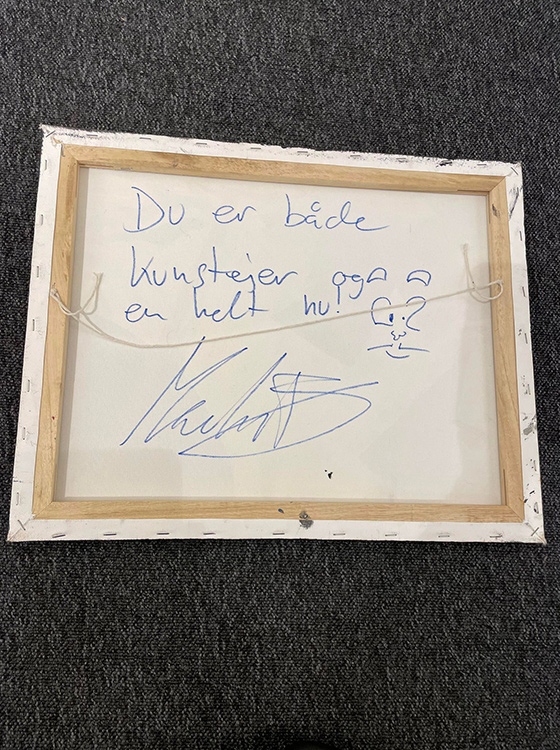 Du er både
Kunstejer og
en helt nu!